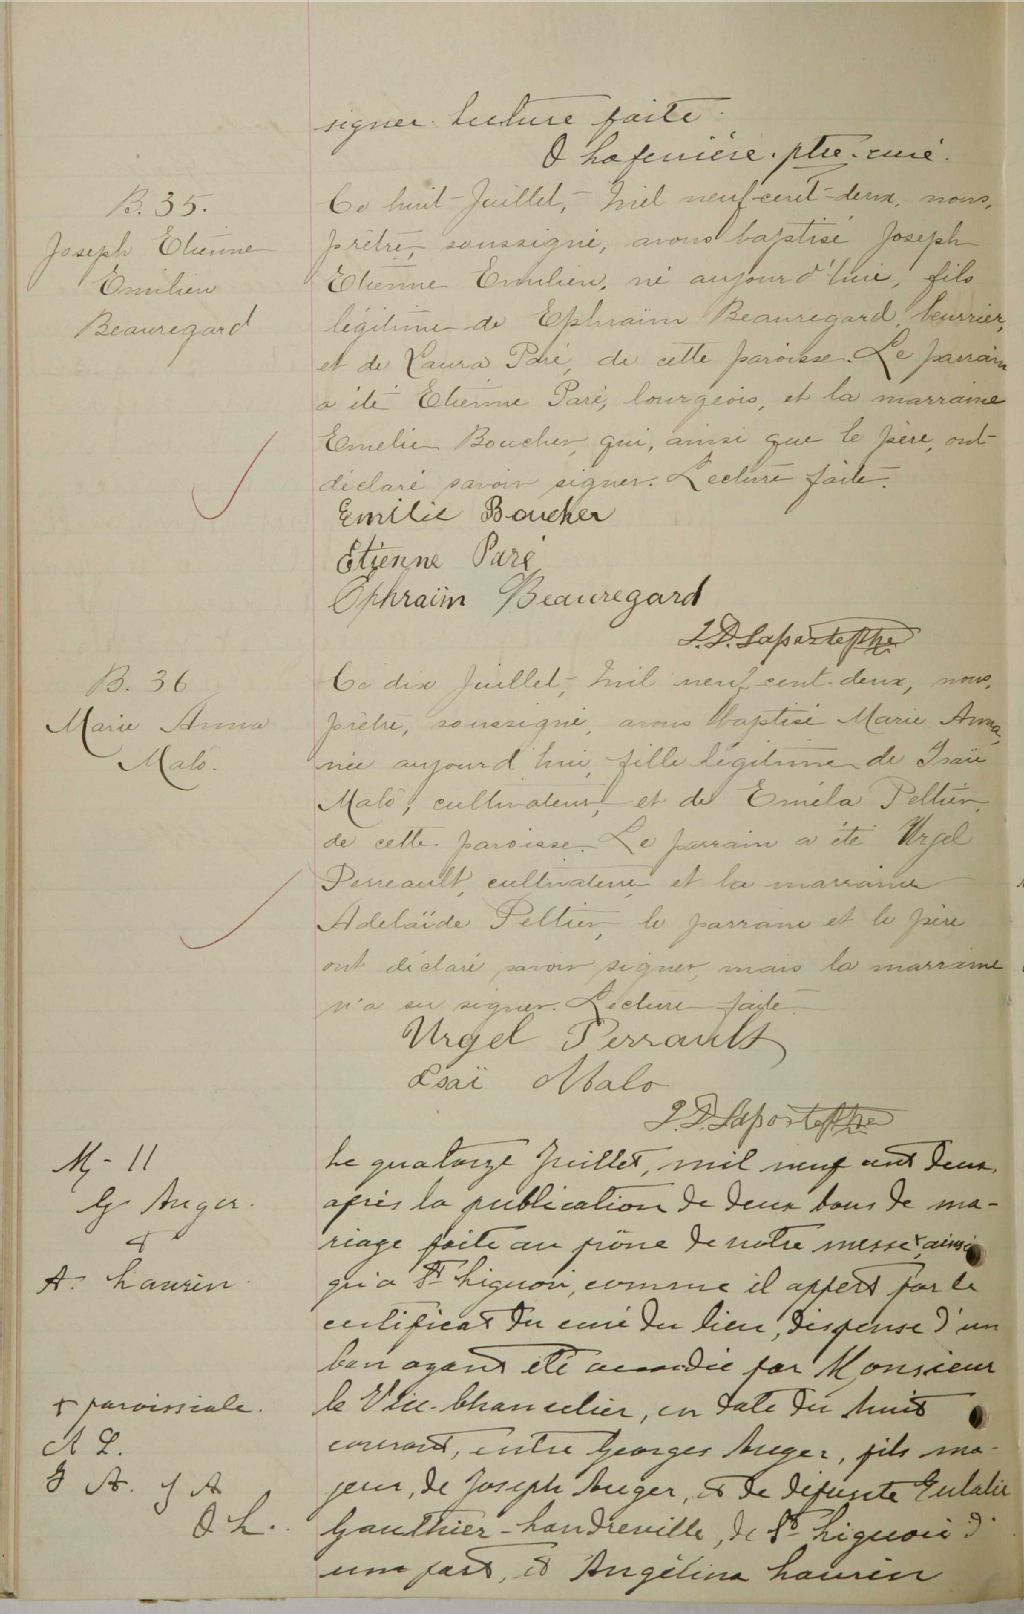 signer. Lecture faite.
O Laferrière. ptre. curé.
B. 35.
Joseph Etienne
Emilien
Beauregard
Ce huit Juillet, mil neuf-cent-deux, nous,
prêtre, soussigné, avons baptisé Joseph
Etienne Emilien, né aujourd'hui, fils
légitime de Ephraïm Beauregard, beurrier,
et de Laura Paré, de cette paroisse. Le parrain
a été Etienne Paré, bourgeois, et la marraine
Emelie Boucher, qui, ainsi que le père, ont
déclaré savoir signer. Lecture faite.
Emilie Boucher
Etienne Paré
Ephraïm Beauregard
J.D. Laporte Ptre
B. 36
Marie Anna
Malo.
Ce dix Juillet, mil neuf cent-deux, nous,
prêtre, soussigné, avons baptisé Marie Anna,
née aujourd'hui, fille légitime de Isaïe
Malo, cultivateur, et de Eméla Peltier,
de cette paroisse. Le parrain a été Urgel
Perreault, cultivateur, et la marraine
Adelaïde Peltier, le parrain et le père
ont déclaré savoir signer, mais la marraine
n'a su signer. Lecture faite.
Urgel Perrault
Esaï Malo
J.D. Laporte Ptre
M - 11
G Auger.
&
A. Laurin
Le quatorze Juillet, mil neuf cent deux,
après la publication de deux bans de ma-
riage faite au prône de notre messe + ainsi
qu'a St Liguori, comme il appert par le
certificat du curé du lieu, dispense d'un
ban ayant été accordée par Monsieur
le Vice-Chancelier, en date du huit
courant, entre Georges Auger, fils ma-
jeur, de Joseph Auger, & de défunte Eulalie
Gauthier-Landreville, de St Liguori d'
une part, & Angélina Laurin
+ paroissiale.
A L.
G A. J A
O L.